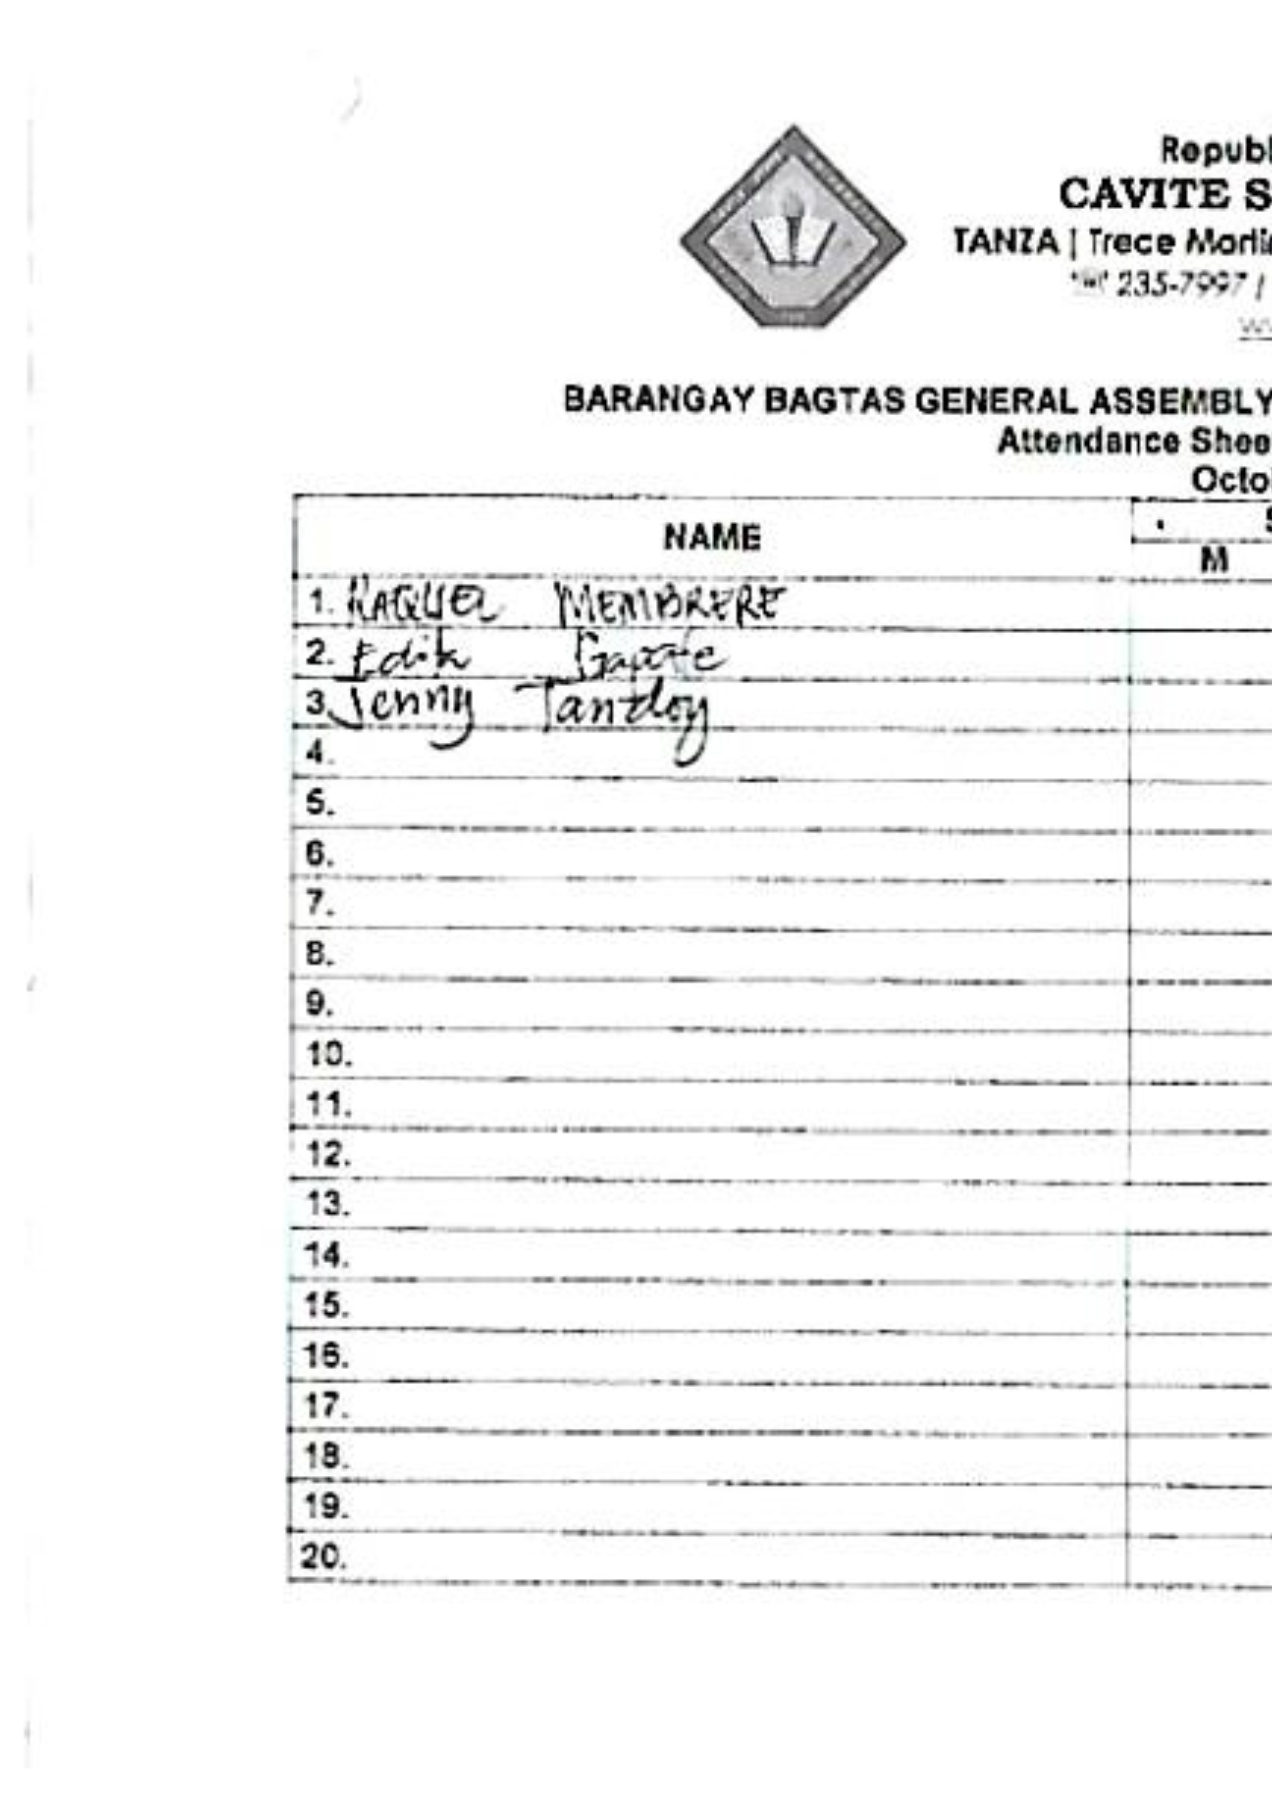 Republ
CAVITE S
TANZA | Trece Marti
☎ 235-7997 /
BARANGAY BAGTAS GENERAL ASSEMBLY
Attendance Shee
Octo
NAME
M
1. RAQUEL MEMBRERE
2. Edik
3. Jenny Tandoy
4.
5.
6.
7.
8.
9.
10.
11.
12.
13.
14.
15.
16.
17.
18.
19.
20.